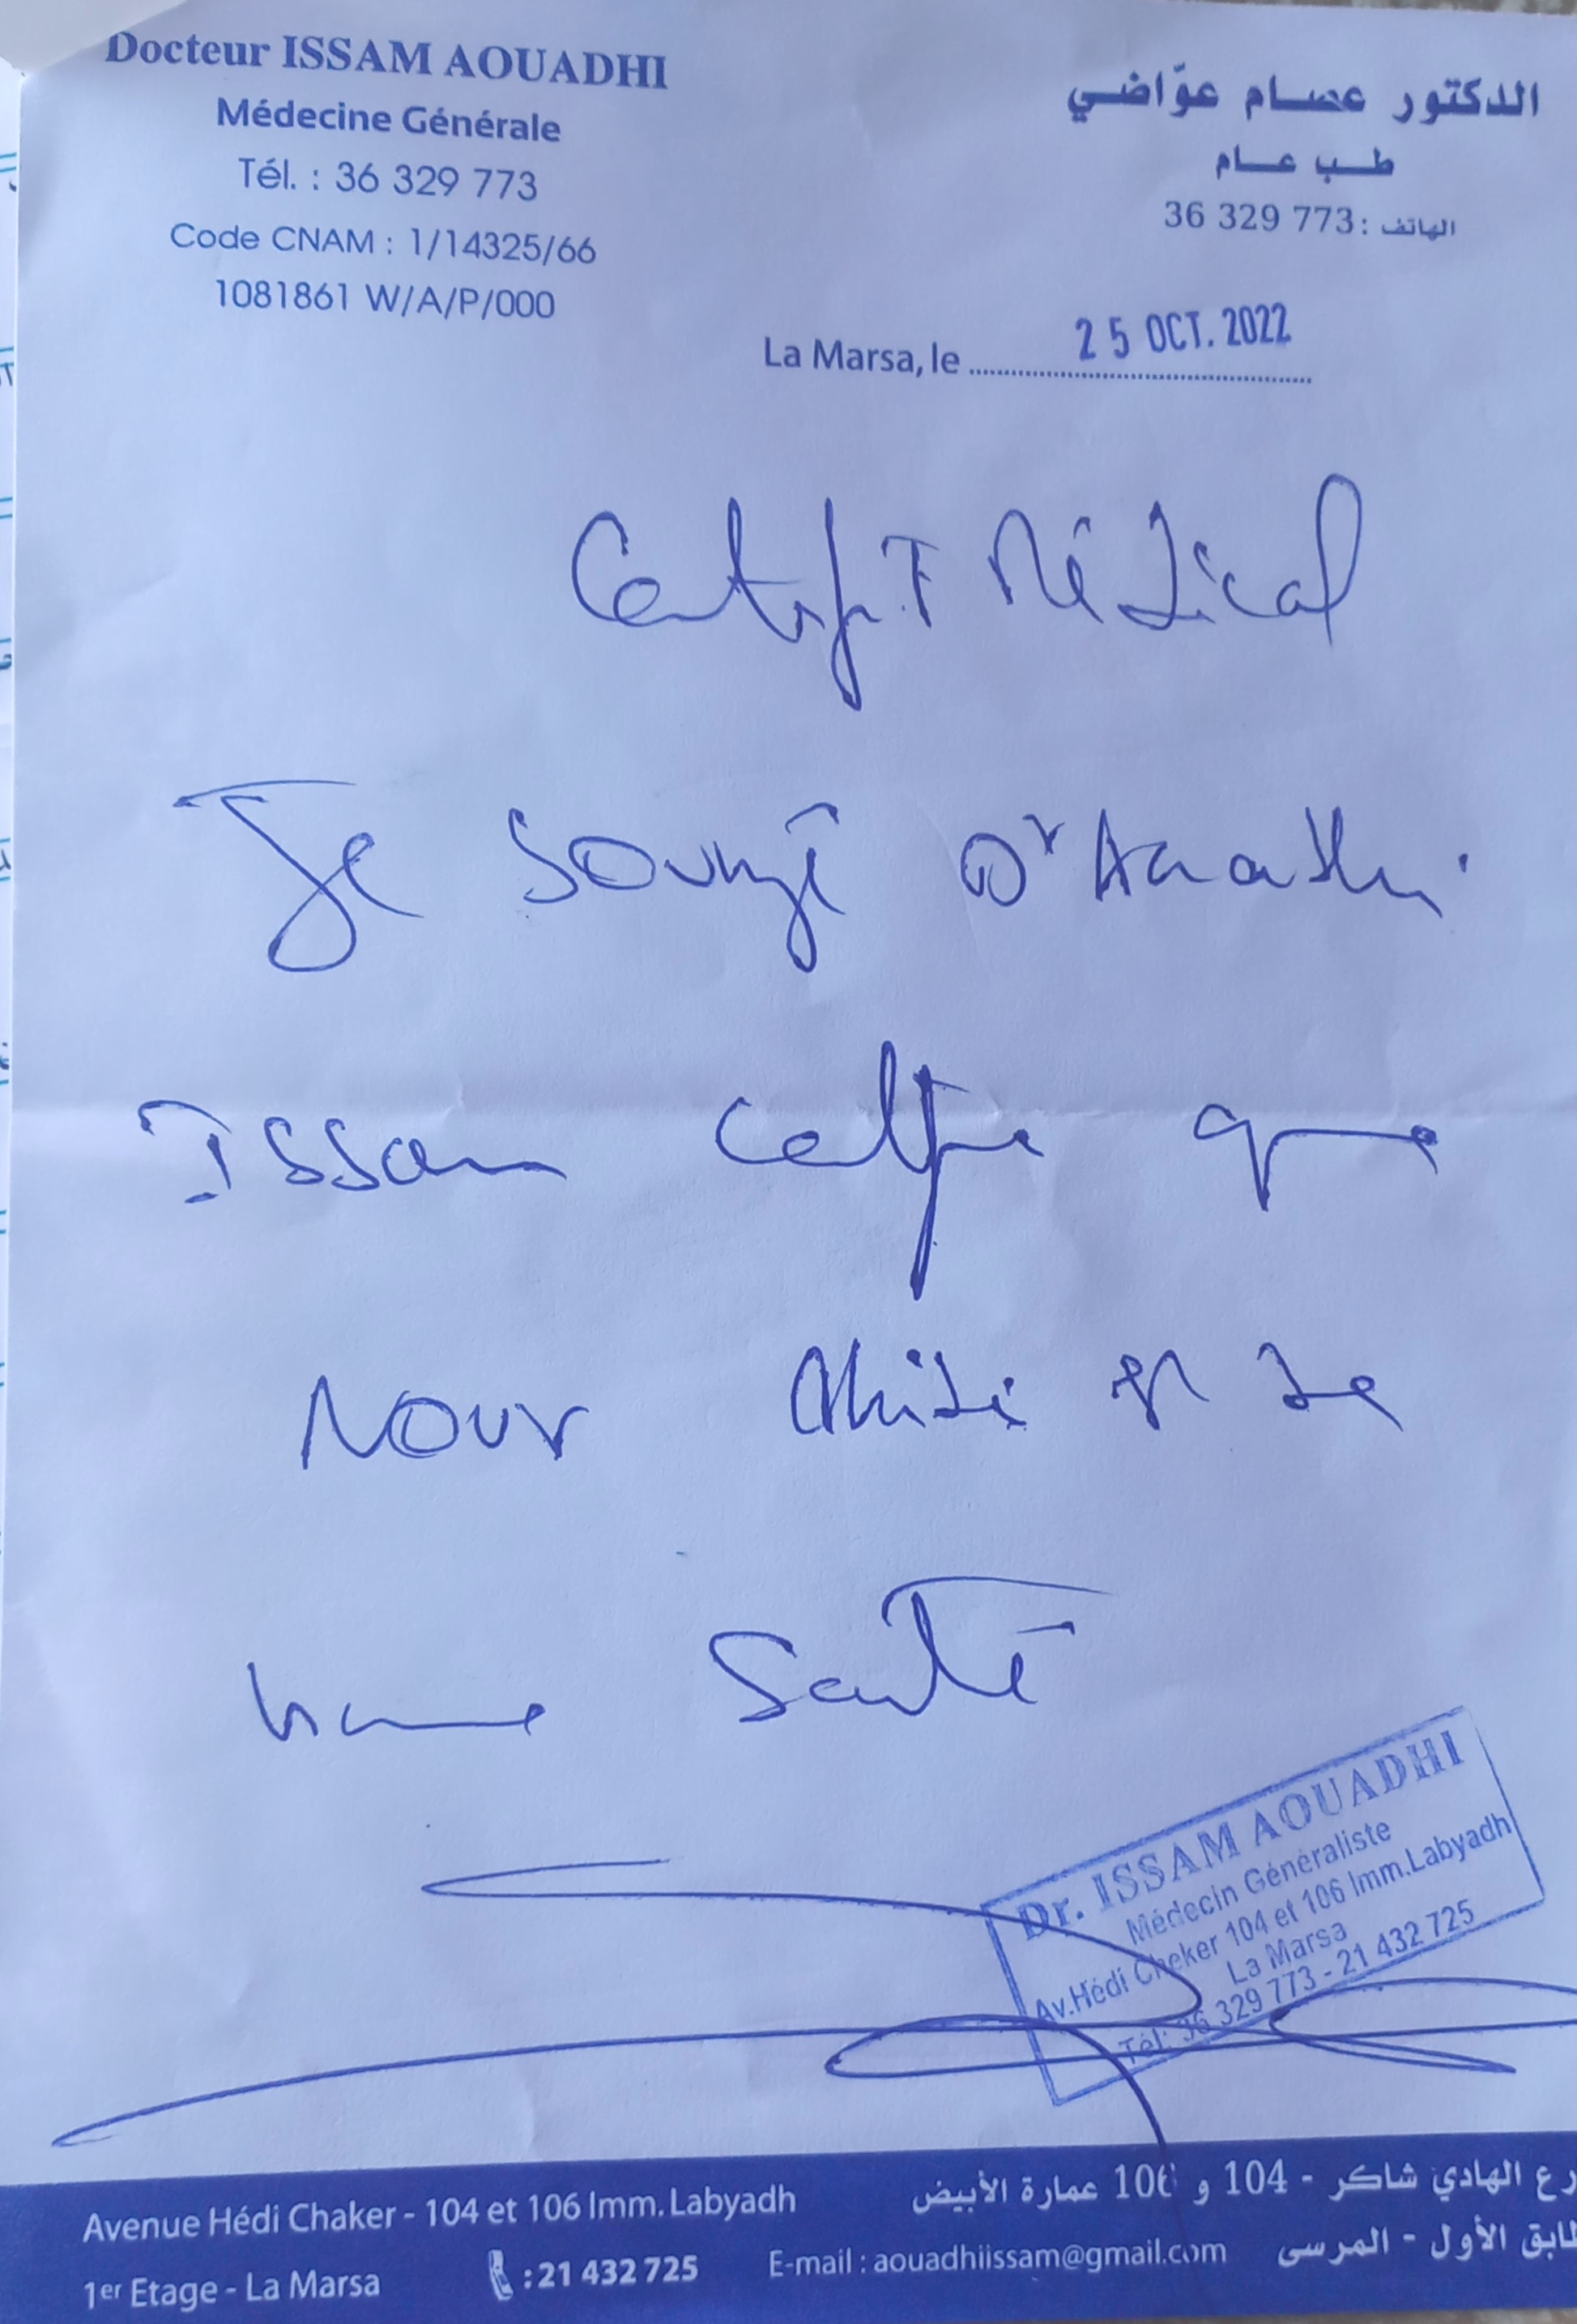 Docteur ISSAM AOUADHI
Médecine Générale
Tél. : 36 329 773
Code CNAM : 1/14325/66
1081861 W/A/P/000
الدكتور عصام عوّاضي
طب عام
الهاتف : 36 329 773
La Marsa, le 25 OCT. 2022
Certif Médical
Je sousigé Dr Aouadhi
Issam certifie que
Nour Abidi est de
bonne Santé
Dr. ISSAM AOUADHI
Médecin Généraliste
Av.Hédi Cheker 104 et 106 Imm.Labyadh
La Marsa
Tél: 36 329 773 - 21 432 725
Avenue Hédi Chaker - 104 et 106 Imm. Labyadh
1er Etage - La Marsa
: 21 432 725
E-mail : aouadhiissam@gmail.com
رع الهادي شاكر - 104 و 106 عمارة الأبيض
طابق الأول - المرسى